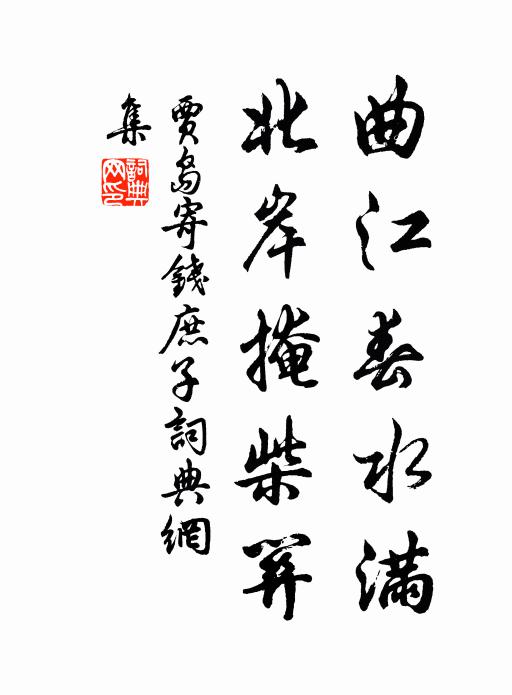 曲江春水满
北岸掩柴關
賈島寄錢庶子詞典網
集
詞典網印